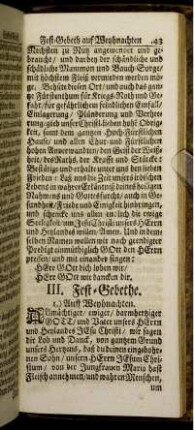 Fest-Gebeth auf Weyhnachten 43
Nechsten zu Nutz angewendet und ge-
braucht/ und darbey der schändliche und
schädliche Mammon und Bauch-Sorge
mit höchstem Fleiß vermieden werden mö-
ge. Behüte diesen Ort/ und auch das gan-
tze Fürstenthum für Kriegs-Noth und Ge-
fahr/ für gefährlichem feindlichen Einfall/
Einlagerung/ Plünderung und Verhee-
rung/ gieb unser Christlichen hohe Obrig-
keit, samt dem gantzen Hoch-Fürstlichen
Hause/ und allen Chur- und Fürstlichen
hohen Anverwandten/ den Geist der Weiß-
heit/ des Raths, der Krafft und Stärcke:
Bestätige und erhalte unter uns den lieben
Frieden: Laß uns die Zeit unsers
Leben in wahrer Erkäntniß deines heiligen
Nahmens und Gottesfurcht/ auch in Ge-
sundheit/ Friede und Einigkeit hinbringen/
und schencke uns allen endlich die ewige
Seeligkeit/ um JEsu Christi unsers HErrn
und Heylandes willen/ Amen. Und in des-
selben Namen wollen wir nach geendigter
Predigt einmüthiglich GOtt den HErrn
preisen/ und mit einander singen:
HErr GOtt dich loben wir/
HErr GOtt wir dancken dir.
III. Fest-Gebethe.
1.) Auff Weyhnachten.
Allmächtiger/ ewiger/ barmhertziger
GOTT/ und Vater unsers HErrn
und Heylandes JESu Christi/ wir sagen
dir Lob und Danck/ von gantzem Grund
unsers Hertzens, daß du deinen eingebohr-
nen Sohn/ unsern HErrn JESum Chri-
stum/ von der Jungfrauen Maria hast
Fleisch annehmen/ und wahren Menschen,
um